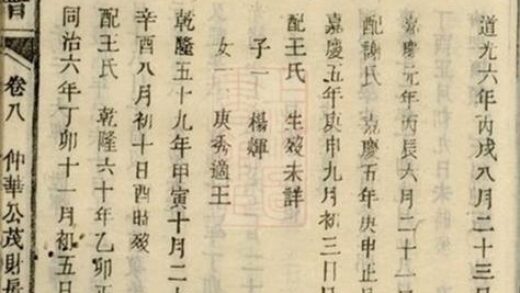 道光六年丙戌八月二十三日
嘉慶元年丙辰六月二十一
配謝氏 嘉慶五年庚申正月
嘉慶五年庚申九月初三日
配王氏 生歿未詳
子一 楊輝
女一 庚秀適王
乾隆五十九年甲寅十月二
辛酉八月初十日酉時歿
配王氏 乾隆六十年乙卯正
同治六年丁卯十一月初五日
卷八 仲華公茂財